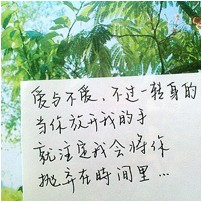 爱与不爱，不过一转身的
当你放开我的手
就注定我会将你
抛弃在時间里…